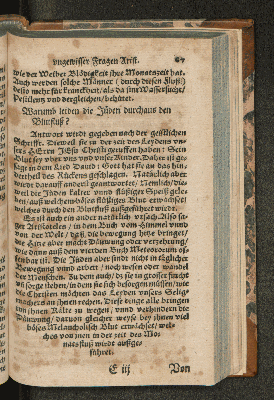 ungewisser Fragen Arist. 67
wie der Weiber Blödigkeit ihre Monatszeit hat.
Auch werden solche Männer (durch diesen Fluß)
desto mehr für kranckheit / als da sind Wassersucht /
Pestilentz und dergleichen / behütet.
Warumb leiden die Jüden durchaus den
Blutfluß?
Antwort wirdt gegeben nach der geistlichen
Schrifft. Dieweil sie zu der zeit des Leydens un-
sers HErrn JEsu Christi geruffen haben: Sein
Blut sey uber uns und unser Kinder. Daher ist ge-
sagt in dem Lied David: Gott hat sie an das hin-
dertheil des Rückens geschlagen. Natürlich aber
würde darauff anderst geantwortet / Nemlich / die-
weil die Jüden kalte und flüssige Speiß
auß welchen böses flüssiges Blut erwächset
welches durch den Blutfluß außgeführet wirdt.
Es ist auch ein ander natürlich ursach Also sa-
get Aristoteles / in dem Buch vom Himmel unnd
von der Welt / daß die bewegung hitze bringet /
die Hitze aber macht Däuwung oder verzehrung /
wie dann auß dem vierdten Buch Meteororum of-
fenbar ist. Die Jüden aber sindt nicht in täglicher
Bewegung unnd arbeit / noch wesen oder wandel
der Menschen. Zu dem auch / daß sie in grosser furcht
uns sorge stehen / in dem sie sich besorgen müssen / wie
die Christen möchten das Leyden unsers Selig-
machers an ihnen rechen. Diese dinge alle bringen
von ihnen Kälte zu wegen / unnd verhindern die
Däuwung / darvon gleicher weyse bey ihnen viel
böses Melancholisch Blut erwächset / wel-
ches von inen in der zeit des Mo-
natsfluß wirdt außge-
führet.
E iij Von